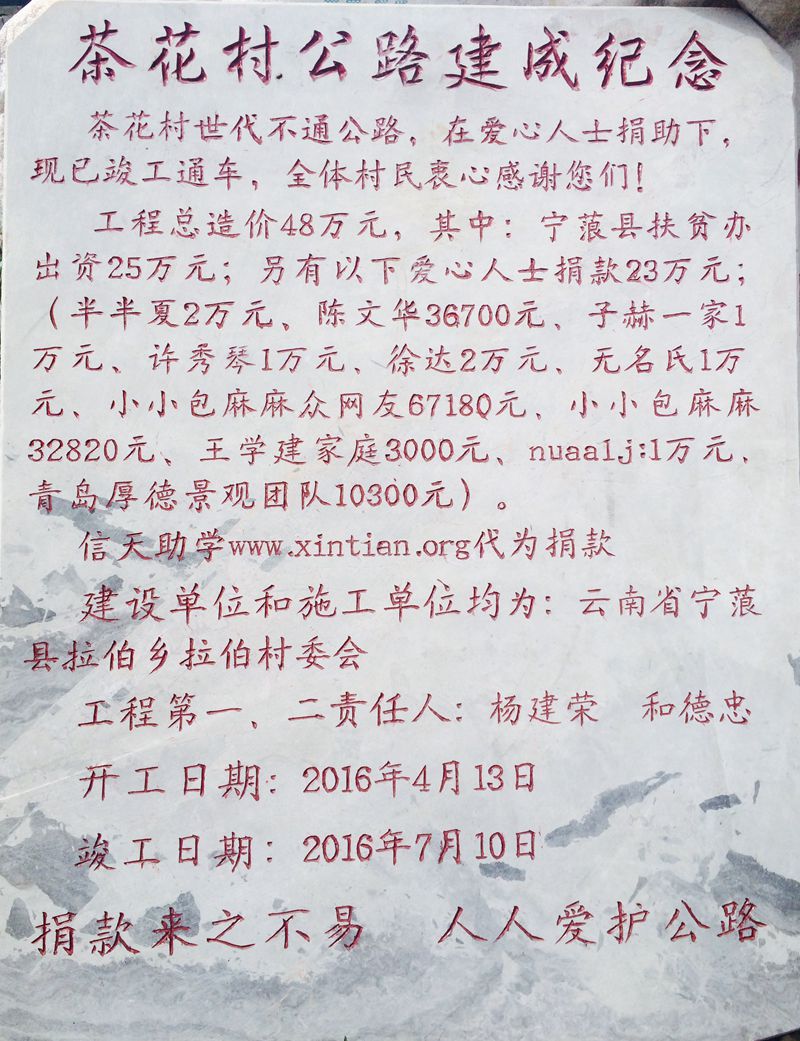 茶花村公路建成纪念
茶花村世代不通公路，在爱心人士捐助下，
现已竣工通车，全体村民衷心感谢您们！
工程总造价48万元，其中：宁蒗县扶贫办
出资25万元；另有以下爱心人士捐款23万元；
（半半夏2万元、陈文华36700元、子赫一家1
万元、许秀琴1万元、徐达2万元、无名氏1万
元、小小包麻麻众网友67180元、小小包麻麻
32820元、王学建家庭3000元、nuaalj:1万元、
青岛厚德景观团队10300元）。
信天助学www.xintian.org代为捐款
建设单位和施工单位均为：云南省宁蒗
县拉伯乡拉伯村委会
工程第一、二责任人：杨建荣 和德忠
开工日期：2016年4月13日
竣工日期：2016年7月10日
捐款来之不易 人人爱护公路